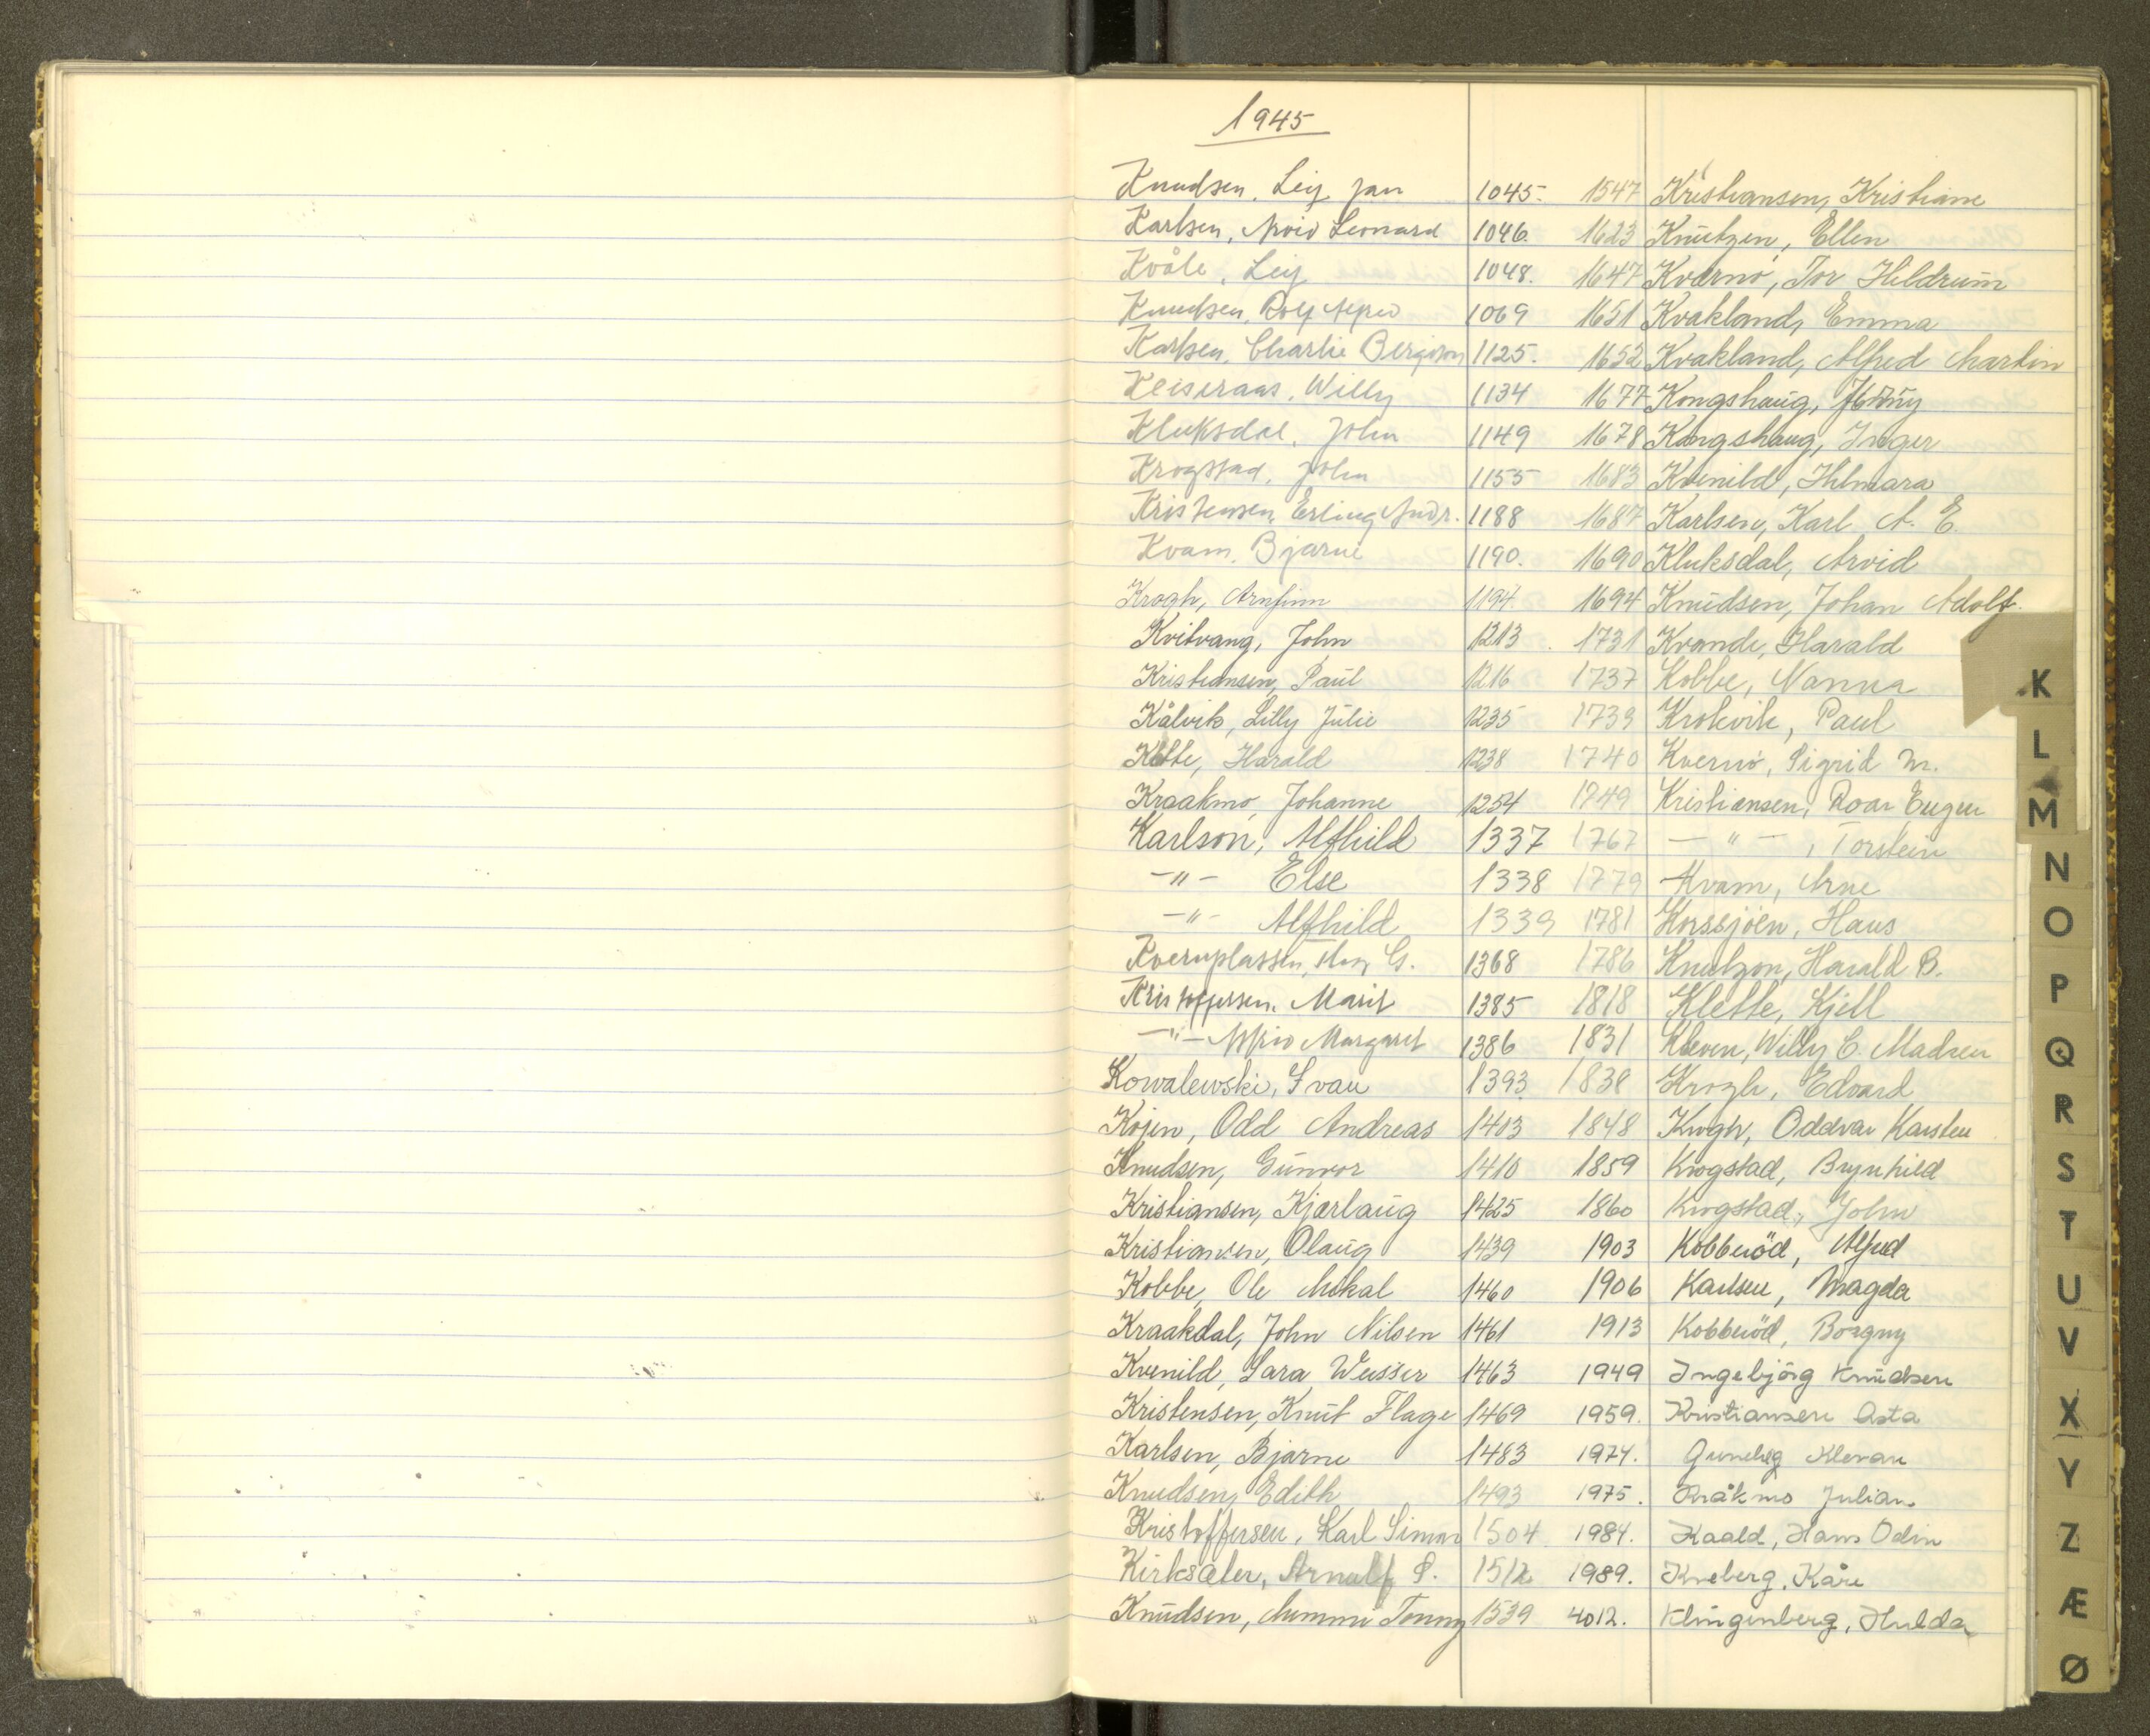 1945
Knudsen, Leif Jan 1045. 1547 Kristiansen, Kristiane
Karlsen, Arvid Leonard 1046. 1623 Knutzen, Ellen
Kvåle, Leif 1048. 1647 Kvernö, Tor Hildrum
Knudsen, Rolf Alfred 1069 1651 Kvakland, Emma
Karlsen, Charlie Bergiton 1125. 1652 Kvakland, Alfred Martin
Keiseraas, Willy 1134 1677 Kongshaug, Jenny
Kluksdal, John 1149 1678 Kongshaug, Inger
Krogstad, John 1155 1683 Kvenild, Hilmara
Kristensen, Erling Andr. 1188 1687 Karlsen, Karl A. E.
Kvam, Bjarne 1190. 1690 Kluksdal, Arvid
Krogh, Arnfinn 1194 1694 Knudsen, Johan Adolf.
Kvitvang, John 1213 1731 Kvande, Harald
Kristiansen, Paul 1216 1737 Kobbe, Nanna
Kålvik, Lilly Julie 1235 1739 Krokvik, Paul
Klette, Harald 1238 1740 Kvernö, Sigrid M.
Kraakmo, Johanne 1254 1749 Kristiansen, Roar Eugen
Karlson, Alfhild 1337 1767 — " — , Torstein
-"- Else 1338 1779 Kvam, Arne
-"- Alfhild 1339 1781 Korssjöen, Hans
Kvernplassen, G. 1368 1786 Knutzon, Harald B.
Kristoffersen, Marit 1385 1818 Klette, Kjell
-"- Margaret 1386 1831 Kleven, Willy C. Madsen
Kowalewski, Ivan 1393 1838 Krogh, Edvard
Kojen, Odd Andreas 1403 1848 Krogh, Oddvar Karsten
Knudsen, Gunvor 1410 1859 Krogstad, Brynhild
Kristiansen, Kjærlaug 1425 1860 Krogstad, John
Kristiansen, Olaug 1439 1903 Kobberöd, Alfred
Kobbe, Ole Mikal 1460 1906 Karlsen, Magda
Kraakdal, John Nilsen 1461 1913 Kobberöd, Borgny
Kvenild, Sara Weisser 1463 1949 Ingebjörg Knudsen
Kristensen, Knut Flage 1469 1959. Kristiansen Asta
Karlsen, Bjarne 1483 1974. Klevan
Knudsen, Edith 1493 1975. Kråkmo Julian
Kristoffersen, Karl Simon 1504 1984. Kaald, Hans Odin
Kirksæter, Arnulf P. 1512 1989. Kneberg, Kåre
Knudsen, Mimmi Tonny 1539 4012. Klingenberg, Hulda
K
L
M
N
O
P
Q
R
S
T
U
V
X
Y
Z
Æ
Ø